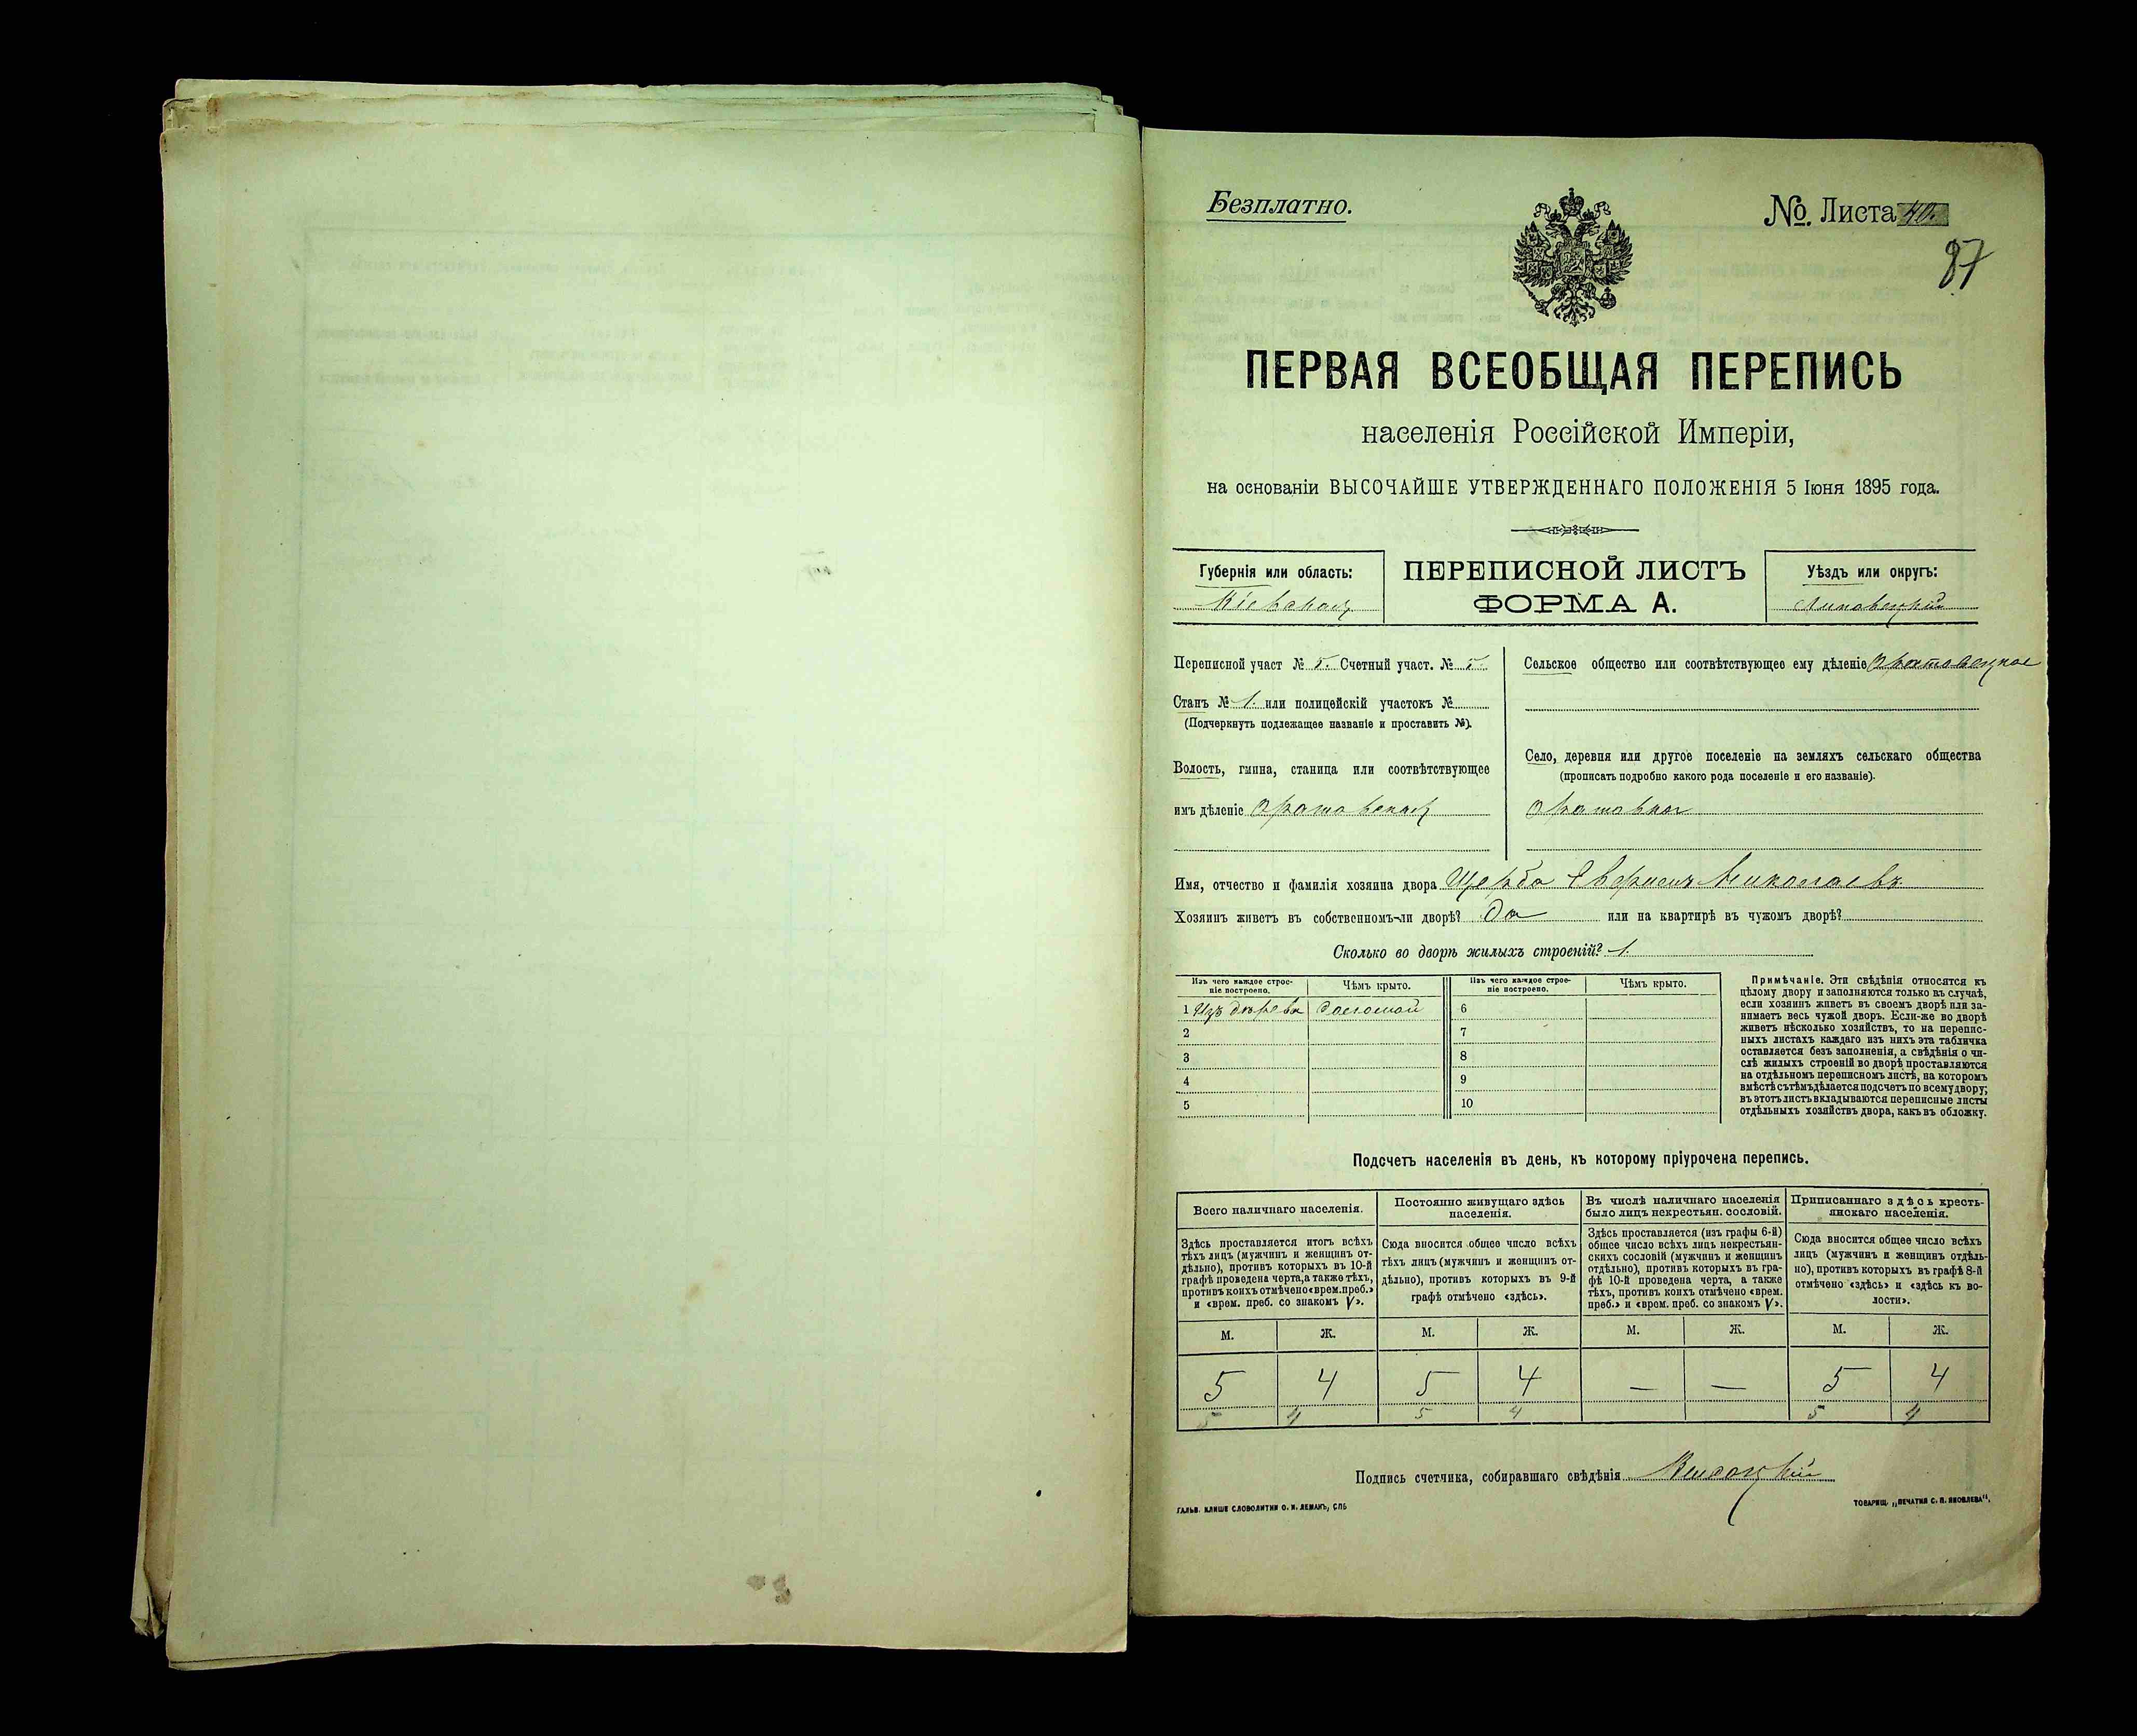 Безплатно.
№. Листа 40.
87
ПЕРВАЯ ВСЕОБЩАЯ ПЕРЕПИСЬ
населенія Россійской Имперіи,
на основаніи ВЫСОЧАЙШЕ УТВЕРЖДЕННАГО ПОЛОЖЕНІЯ 5 Іюня 1895 года.
Губернія или область:
Кіевская
ПЕРЕПИСНОЙ ЛИСТЪ
ФОРМА А.
Уѣздъ или округъ:
Липовецкій
Переписной участ № 5. Счетный участ. № 5
Станъ № 1. или полицейскій участокъ №
(Подчеркнуть подлежащее названіе и проставить №).
Волость, гмина, станица или соотвѣтствующее
имъ дѣленіе Оратовская
Сельское общество или соотвѣтствующее ему дѣленіе
Село, деревня или другое поселеніе на земляхъ сельскаго общества
(прописать подробно какого рода поселеніе и его названіе).
Оратовка
Имя, отчество и фамилія хозяина двора Щерба Николаевъ
Хозяинъ живетъ въ собственномъ-ли дворѣ? да или на квартирѣ въ чужомъ дворѣ?
Сколько во дворѣ жилыхъ строеній? 1.
Изъ чего каждое строе-
ніе построено.
Чѣмъ крыто.
Изъ чего каждое строе-
ніе построено.
Чѣмъ крыто.
1 Изъ дерева соломой 6
2 7
3 8
4 9
5 10
Примѣчаніе. Эти свѣдѣнія относятся къ
цѣлому двору и заполняются только въ случаѣ,
если хозяинъ живетъ въ своемъ дворѣ или за-
нимаетъ весь чужой дворъ. Если-же во дворѣ
живетъ нѣсколько хозяйствъ, то на перепис-
ныхъ листахъ каждаго изъ нихъ эта табличка
оставляется безъ заполненія, а свѣдѣнія о чи-
слѣ жилыхъ строеній во дворѣ проставляются
на отдѣльномъ переписномъ листѣ, на которомъ
вмѣстѣ съ тѣмъ дѣлается подсчетъ по всему двору;
въ этотъ листъ вкладываются переписные листы
отдѣльныхъ хозяйствъ двора, какъ въ обложку.
Подсчетъ населенія въ день, къ которому пріурочена перепись.
Всего наличнаго населенія.
Постоянно живущаго здѣсь
населенія.
Въ числѣ наличнаго населенія
было лицъ некрестьян. сословій.
Приписаннаго здѣсь кресть-
янскаго населенія.
Здѣсь проставляется итогъ всѣхъ
тѣхъ лицъ (мужчинъ и женщинъ от-
дѣльно), противъ которыхъ въ 10-й
графѣ проведена черта, а также тѣхъ,
противъ коихъ отмѣчено «врем. преб.»
и «врем. преб. со знакомъ V».
Сюда вносится общее число всѣхъ
тѣхъ лицъ (мужчинъ и женщинъ от-
дѣльно), противъ которыхъ въ 9-й
графѣ отмѣчено «здѣсь».
Здѣсь проставляется (изъ графы 6-й)
общее число всѣхъ лицъ некрестьян-
скихъ сословій (мужчинъ и женщинъ
отдѣльно), противъ которыхъ въ гра-
фѣ 10-й проведена черта, а также
тѣхъ, противъ коихъ отмѣчено «врем.
преб.» и «врем. преб. со знакомъ V».
Сюда вносится общее число всѣхъ
лицъ (мужчинъ и женщинъ отдѣль-
но), противъ которыхъ въ графѣ 8-й
отмѣчено «здѣсь» и «здѣсь къ во-
лости».
М. Ж. М. Ж. М. Ж. М. Ж.
5 4 5 4 — — 5 4
5 4 5 4 5 4
Подпись счетчика, собиравшаго свѣдѣнія
ГАЛЬВ. КЛИШЕ СЛОВОЛИТНИ О. И. ЛЕМАНЪ, СПБ
ТОВАРИЩ. „ПЕЧАТНЯ С. П. ЯКОВЛЕВА".